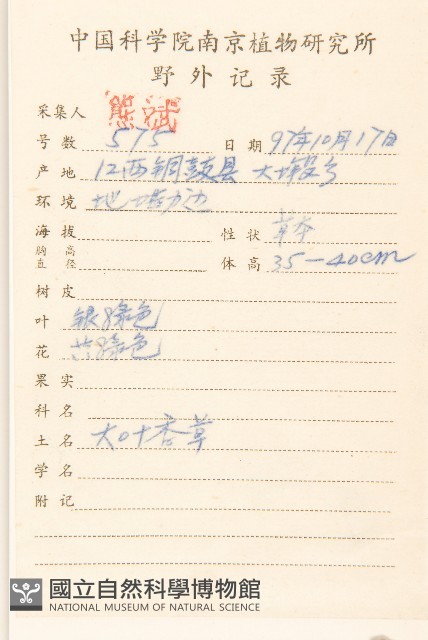 中国科学院南京植物研究所
野外记录
采集人 熊斌
号数 575 日期 97年10月17日
产地 江西铜鼓县 大塅乡
环境 地边
海拔 性状 草本
胸高直径 体高 35-40cm
树皮
叶 银绿色
花 绿色
果实
科名
土名 大叶香草
学名
附记
國立自然科學博物館
NATIONAL MUSEUM OF NATURAL SCIENCE